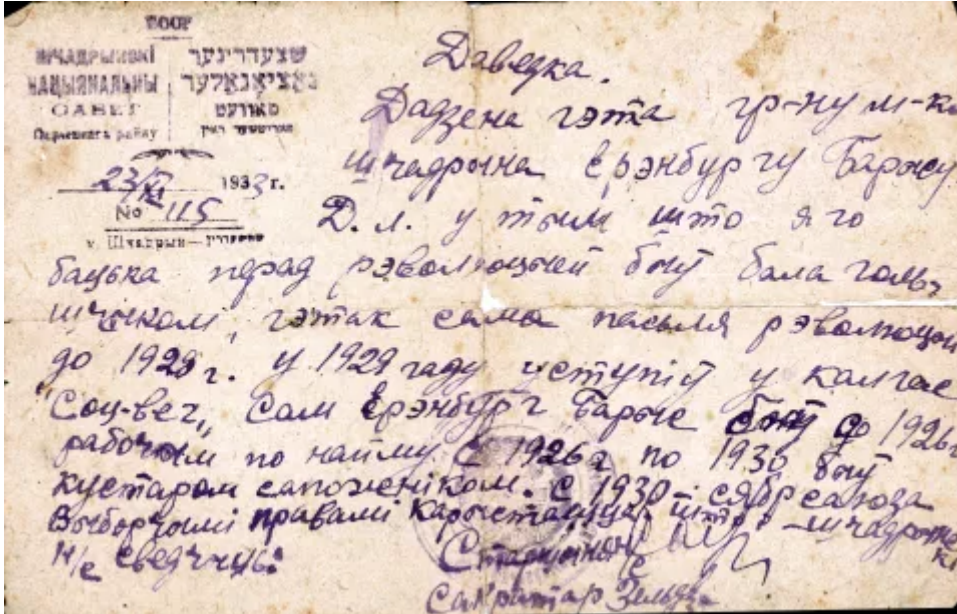 БССР
ШЧАДРЫНСКІ
НАЦЫЯНАЛЬНЫ
САВЕТ
Парыцкага раёну
שצעדרינער
נאציאנאלער
סאוועט
23/XI 1933 г.
No 115
v. Шчадрын —
Даведка.
Дадзена гэта гр-ну м-ка
Шчадрына Ерэнбургу Барысу
Д. Л. у тым што яго
бацька перад рэволюцыей быў бала гольш
шчыком, гэтак сама пасьля рэволюцыи
до 1929 г. У 1929 гаду уступіў у калгас
"Соц-вег„ Сам Ерэнбург Барыс быў до 1926 г
рабочым по найму С 1926 г по 1930 быў
кустаром сапожнікам. С 1930 сябр саюза
Выборчымі правамі карыстаецца што Шчадрынскі
н/с сведчыць.
Старшыня
Сакратар